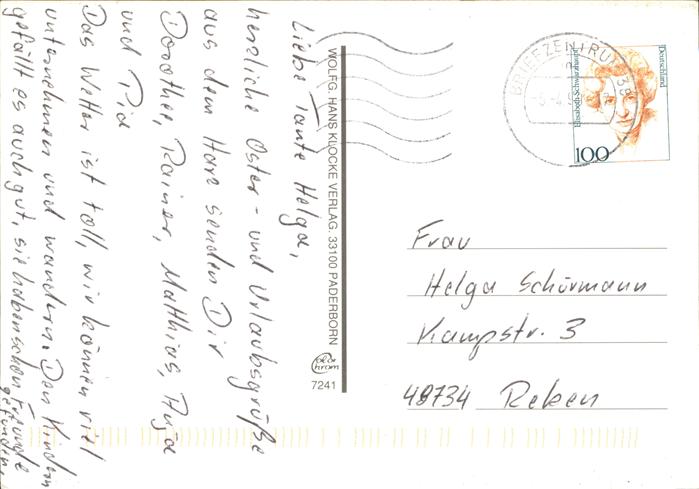 Liebe Tante Helga,
herzliche Oster- und Urlaubsgrüße
aus dem Harz senden Dir
Dorothee, Rainer, Matthias, Anja
und Pia
Das Wetter ist toll, wir können viel
unternehmen und wandern. Den Kindern
gefällt es auch gut, sie haben schon Freunde
gefunden.
WOLFG. HANS KLOCKE VERLAG. 33100 PADERBORN
color
chrom
7241
BRIEFZENTRUM 38
Deutschland
Elisabeth Schwarzhaupt
100
Frau
Helga Schürmann
Kampstr. 3
48734 Reken